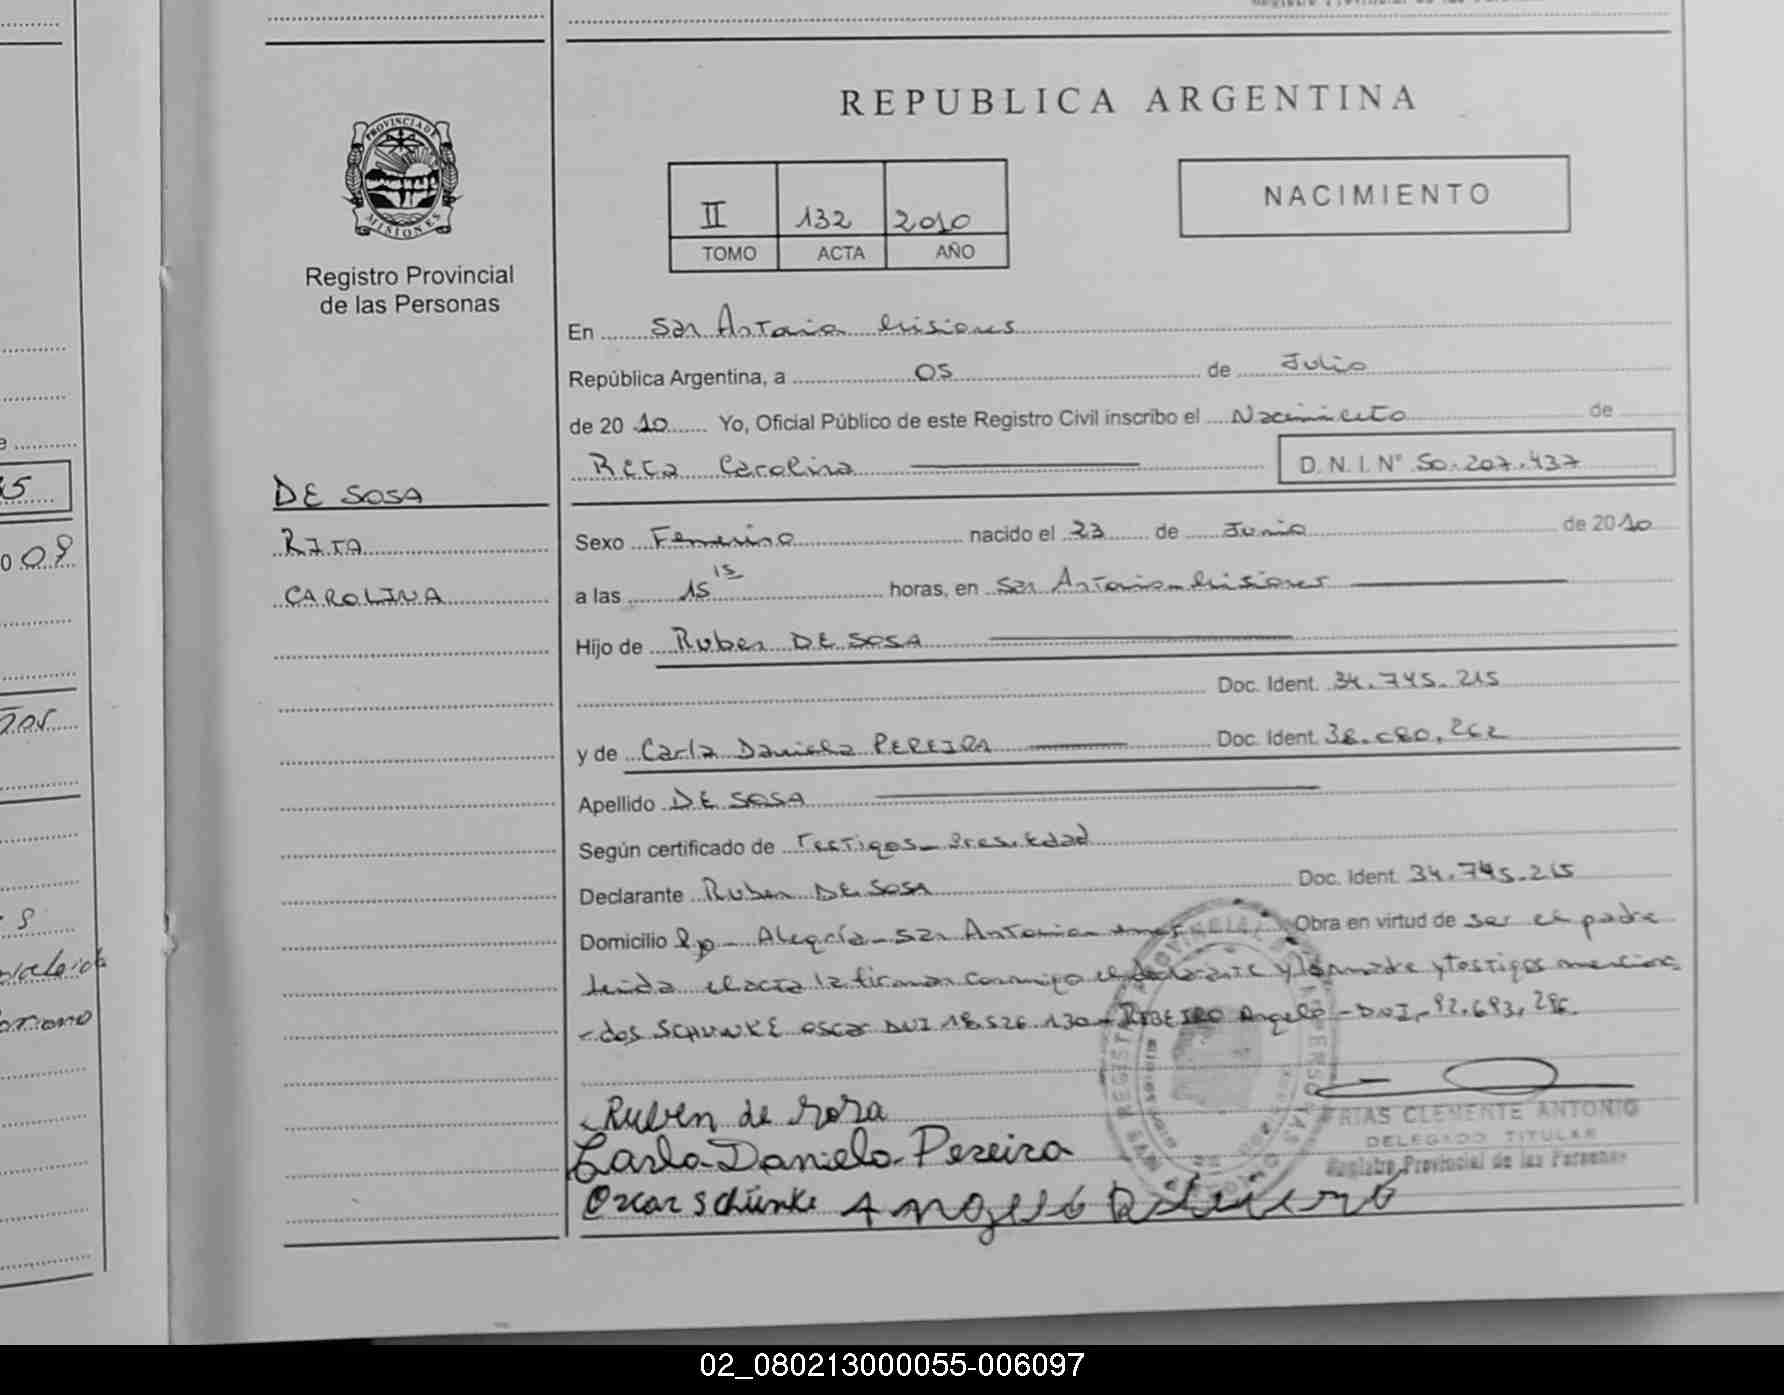 REPUBLICA ARGENTINA
PROVINCIA DE
MISIONES
Registro Provincial
de las Personas
II 132 2010
TOMO ACTA AÑO
NACIMIENTO
En San Antonio Misiones
República Argentina, a 05 de Julio
de 2010 Yo, Oficial Público de este Registro Civil inscribo el Nacimiento de
Rita Carolina D.N.I.N° 50.207.437
DE SOSA
RITA
CAROLINA
Sexo Femenino nacido el 23 de Junio de 2010
a las 15 15 horas, en San Antonio Misiones
Hijo de Ruben DE SOSA
Doc. Ident. 34.745.215
y de Carla Daniela PEREIRA Doc. Ident. 38.080.262
Apellido DE SOSA
Según certificado de Testigos
Declarante Ruben DE SOSA Doc. Ident. 34.745.215
Domicilio Alegría San Antonio Obra en virtud de ser el padre
leida el acta la firman conmigo el declarante y la madre y testigos menciona
-dos SCHUNKE Oscar DNI 18.526.130 - RIBEIRO Angelo - DNI - 92.693.286
Ruben de Sosa
Carla Daniela Pereira
FRIAS CLEMENTE ANTONIO
DELEGADO TITULAR
Registro Provincial de las Personas
Oscar Schünke Angelo Ribeiro
02_080213000055-006097